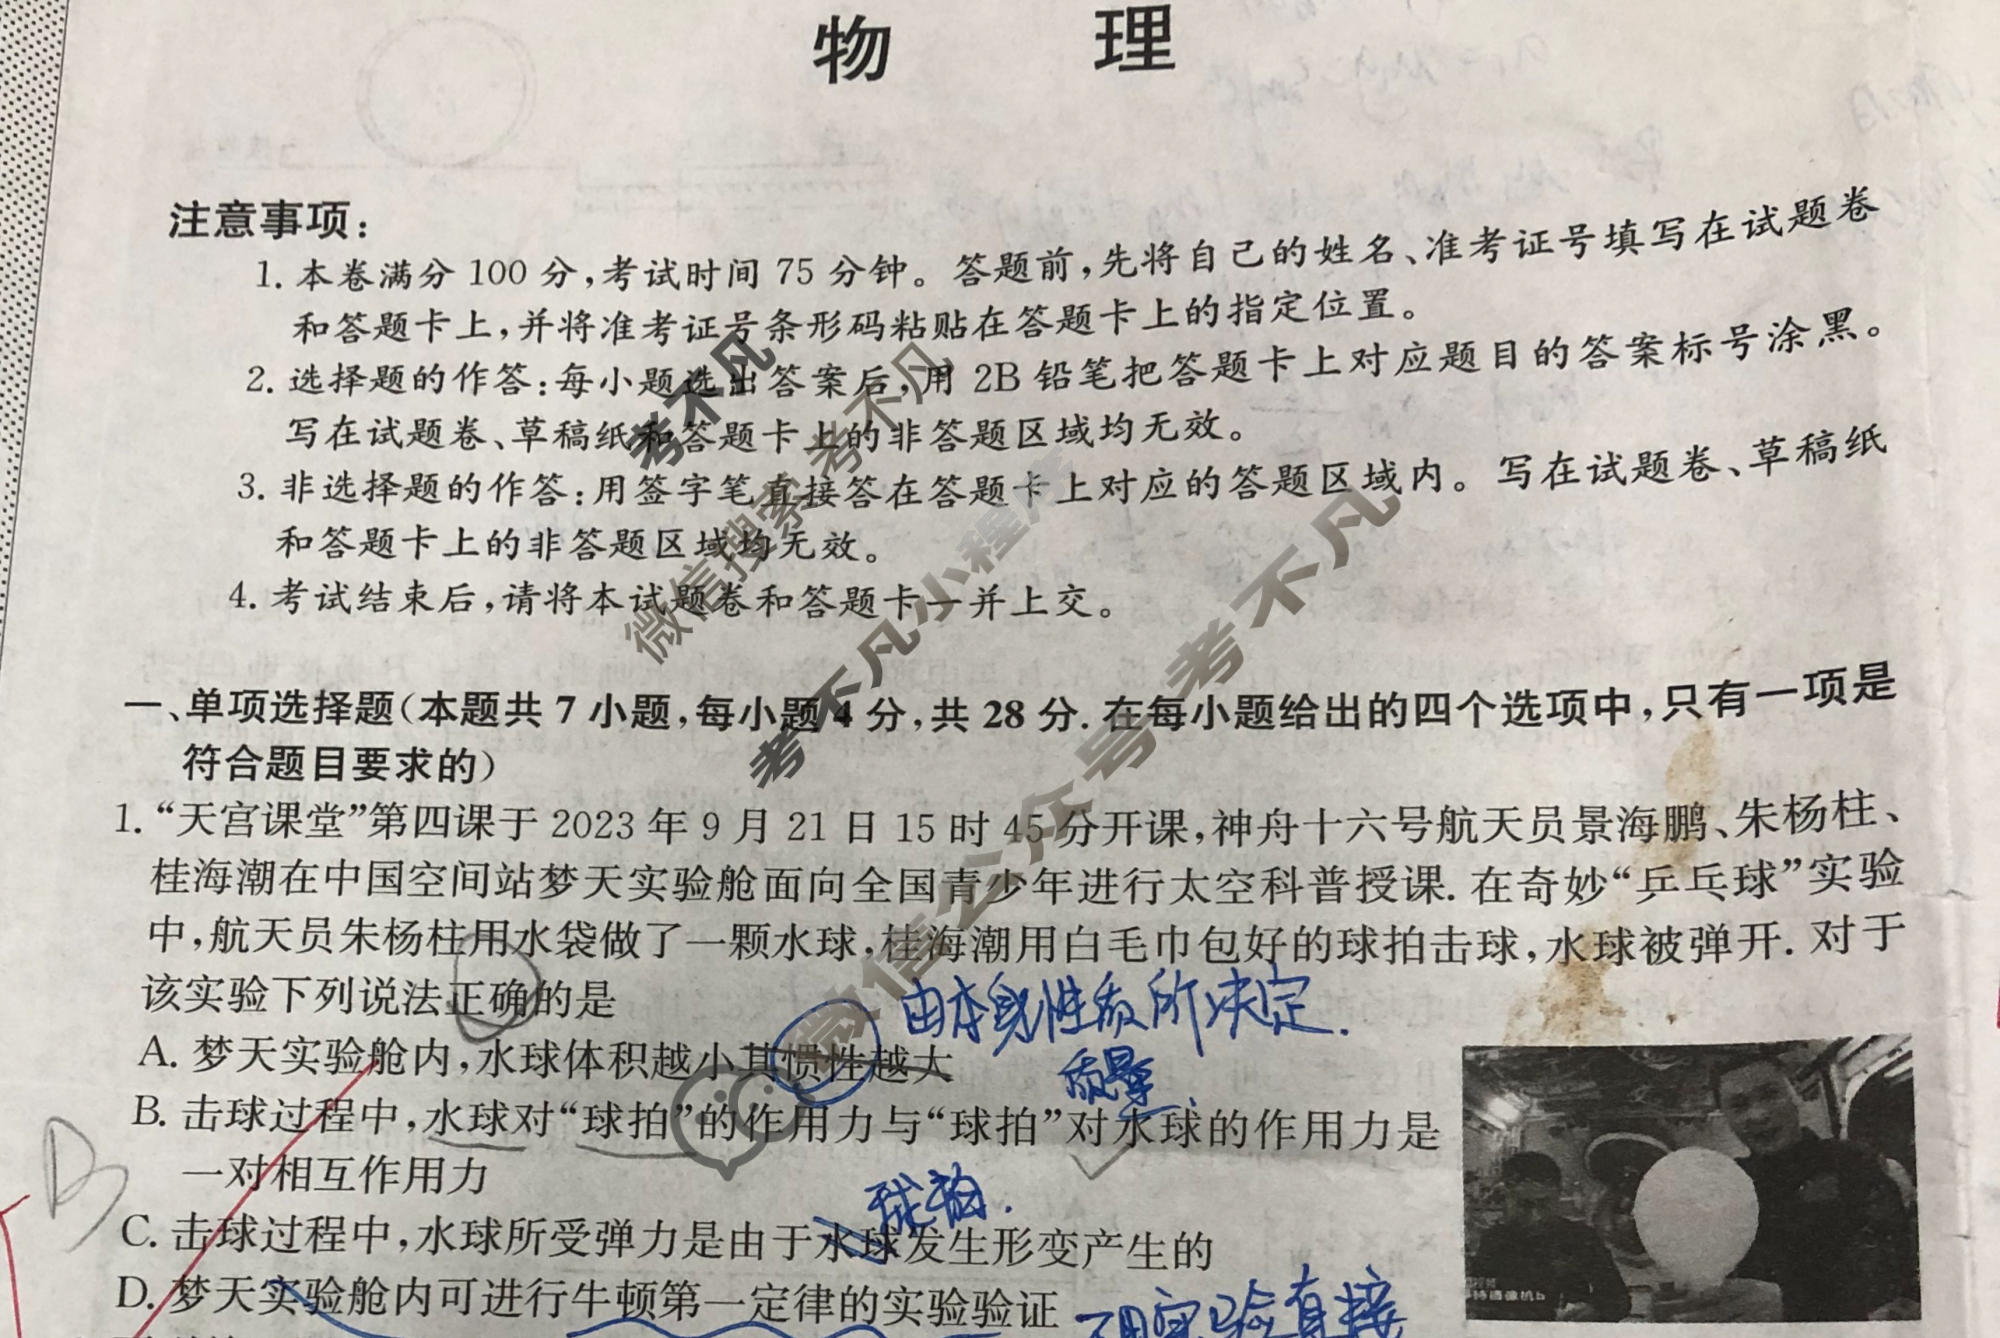 物 理
注意事项:
1. 本卷满分 100 分,考试时间 75 分钟。答题前,先将自己的姓名、准考证号填写在试题卷
和答题卡上,并将准考证号条形码粘贴在答题卡上的指定位置。
2. 选择题的作答:每小题选出答案后,用 2B 铅笔把答题卡上对应题目的答案标号涂黑。
写在试题卷、草稿纸和答题卡上的非答题区域均无效。
3. 非选择题的作答:用签字笔直接答在答题卡上对应的答题区域内。写在试题卷、草稿纸
和答题卡上的非答题区域均无效。
4. 考试结束后,请将本试题卷和答题卡一并上交。
考不凡
微信搜索 考不凡
考不凡小程序
微信公众号 考不凡
一、单项选择题(本题共 7 小题,每小题 4 分,共 28 分. 在每小题给出的四个选项中,只有一项是
符合题目要求的)
1. “天宫课堂”第四课于 2023 年 9 月 21 日 15 时 45 分开课,神舟十六号航天员景海鹏、朱杨柱、
桂海潮在中国空间站梦天实验舱面向全国青少年进行太空科普授课. 在奇妙“乒乓球”实验
中,航天员朱杨柱用水袋做了一颗水球,桂海潮用白毛巾包好的球拍击球,水球被弹开. 对于
该实验下列说法正确的是
由本身性质所决定.
A. 梦天实验舱内,水球体积越小其惯性越大
质量.
B. 击球过程中,水球对“球拍”的作用力与“球拍”对水球的作用力是
一对相互作用力
B
球拍.
C. 击球过程中,水球所受弹力是由于水球发生形变产生的
D. 梦天实验舱内可进行牛顿第一定律的实验验证
不用实验直接